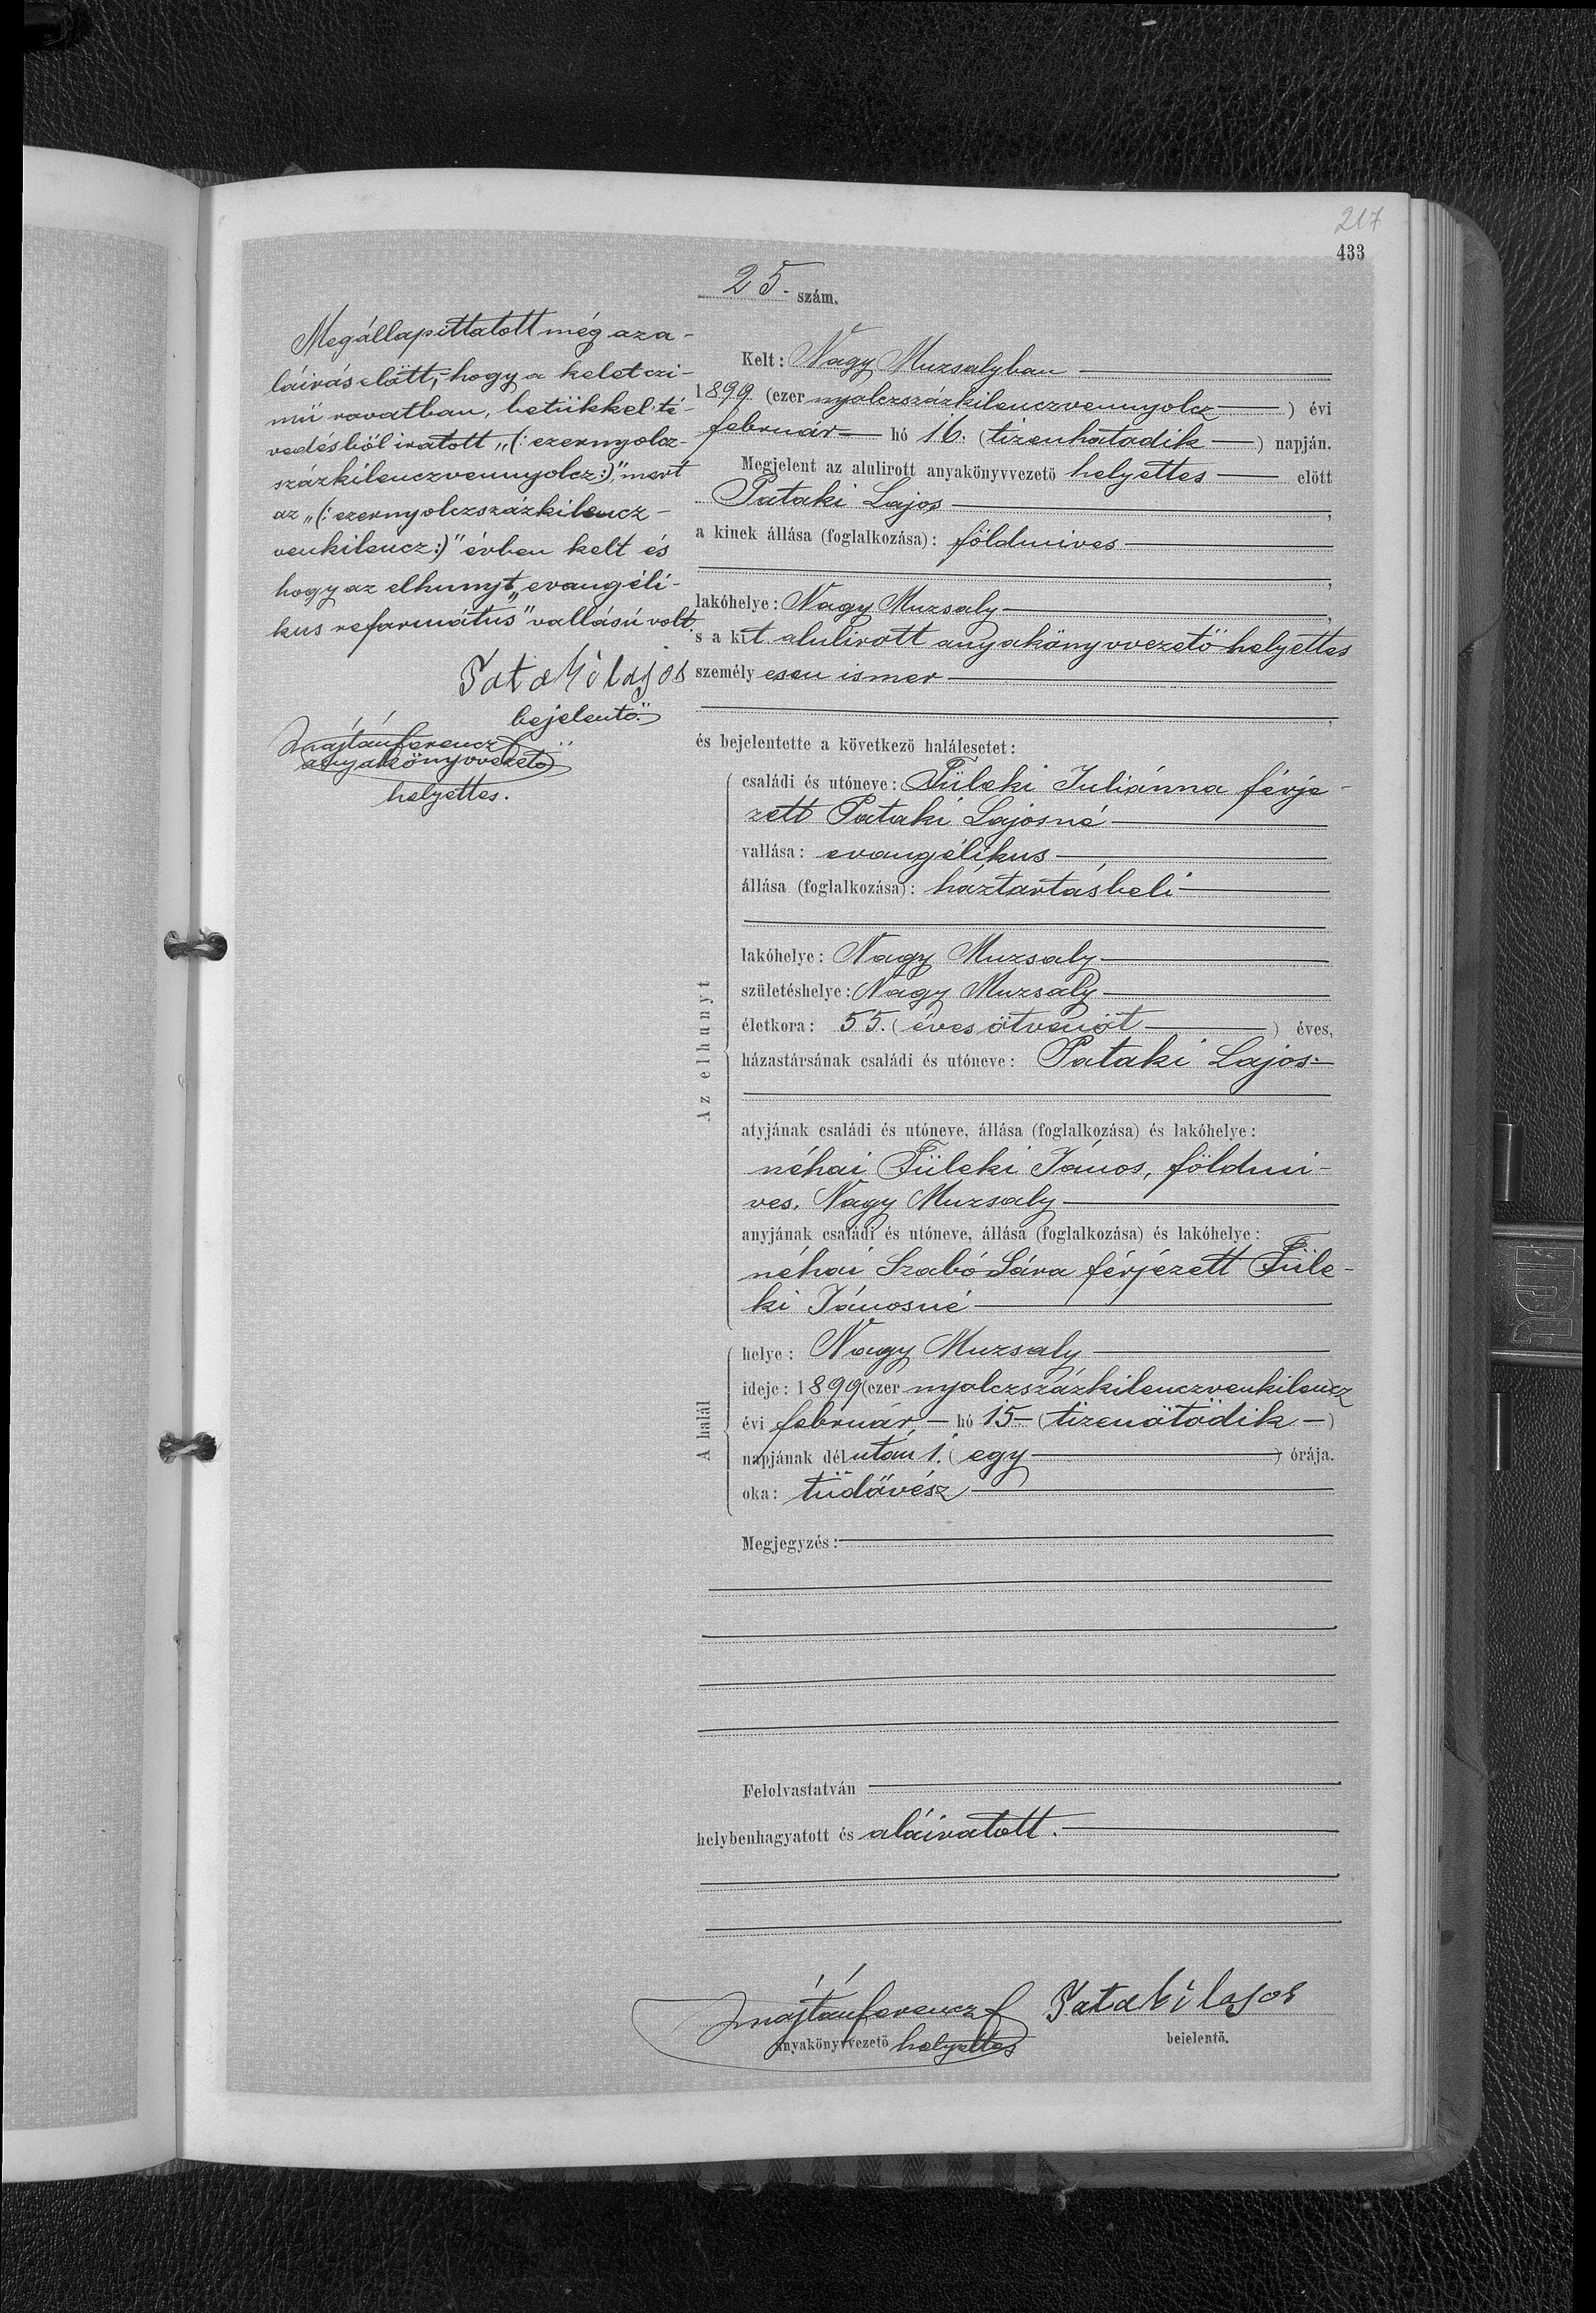 217
433
25. szám.
Megállapíttatott még az a-
láirás előtt, hogy a kelet czi-
mü rovatban, betükkel té-
vedésből iratott „(: ezernyolcz-
százkilenczvennyolcz:)", mert
az „(: ezernyolczszázkilencz-
venkilencz:)" évben kelt és
hogy az elhunyt „evangéli-
kus református" vallású volt.
Pataki Lajos
bejelentő
Ferencz
anyakönyvvezető
helyettes.
Kelt: Nagy Muzsalyban
1899 (ezer nyolczszázkilenczvennyolcz ) évi
február hó 16. (tizenhatodik ) napján.
Megjelent az alulirott anyakönyvvezető helyettes előtt
Pataki Lajos ,
a kinek állása (foglalkozása): földmives
,
lakóhelye: Nagy Muzsaly ,
s a kit alulirott anyakönyvvezető helyettes
személyesen ismer
,
és bejelentette a következő halálesetet:
Az elhunyt
családi és utóneve: Füleki Juliánna férje-
zett Pataki Lajosné
vallása: evangélikus
állása (foglalkozása): háztartásbeli
lakóhelye: Nagy Muzsaly
születéshelye: Nagy Muzsaly
életkora: 55. (éves ötvenöt ) éves,
házastársának családi és utóneve: Pataki Lajos
atyjának családi és utóneve, állása (foglalkozása) és lakóhelye:
néhai Füleki János, földmi-
ves. Nagy Muzsaly
anyjának családi és utóneve, állása (foglalkozása) és lakóhelye:
néhai Szabó Sára férjezett Füle-
ki Jánosné
A halál
helye: Nagy Muzsaly
ideje: 1899 (ezer nyolczszázkilenczvenkilencz
évi február hó 15 (tizenötödik )
napjának délután 1. (egy ) órája.
oka: tüdővész
Megjegyzés:
Felolvastatván
helybenhagyatott és aláiratott.
Ferencz Pataki Lajos
anyakönyvvezető helyettes bejelentő.